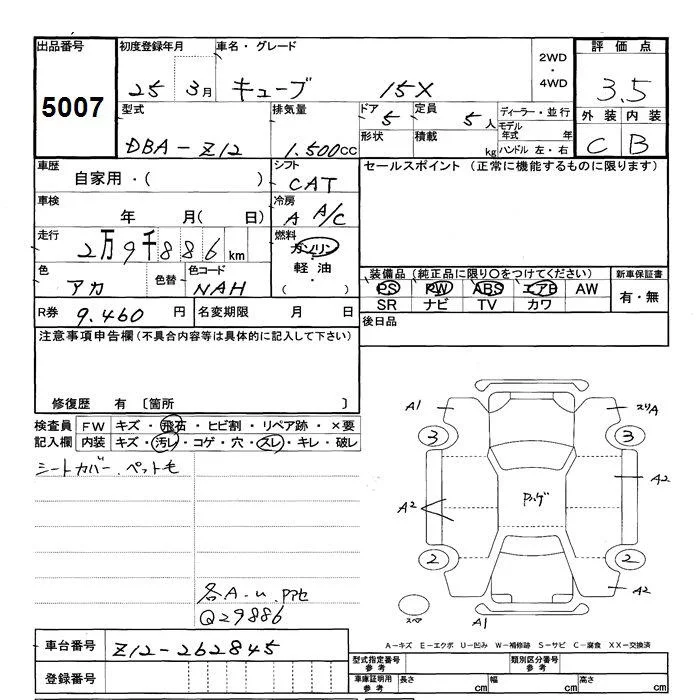 出品番号 初度登録年月 車名・グレード 評価点
5007 25 3月 キューブ 15X 2WD・4WD 3.5
型式 排気量 ドア 定員 ディーラー・並行 外装 内装
DBA-Z12 1.500cc 5 5人 モデル年式 年 C B
形状 積載 kg ハンドル 左・右
車歴 シフト セールスポイント (正常に機能するものに限ります)
自家用・( ) CAT
車検 冷房
年 月( 日) A A/C
走行 燃料
2万9千886km ガソリン
軽油
( )
色 色替 色コード 装備品 (純正品に限り○をつけてください) 新車保証書
アカ NAH PS PW ABS エアB AW 有・無
SR ナビ TV カワ
R券 9.460円 名変期限 月 日 後日品
注意事項申告欄(不具合内容等は具体的に記入して下さい)
修復歴 有 〔箇所 〕
検査員 FW キズ・飛石・ヒビ割・リペア跡・×要
記入欄 内装 キズ・汚レ・コゲ・穴・スレ・キレ・破レ
シートカバー、ペット毛
各A-u.
Q29886
A1 スリA
3 3
A2
A2
2 2
A2
スペア A1
A-キズ E-エクボ U-凹み W-補修跡 S-サビ C-腐食 XX-交換済
車台番号 Z12-262845
登録番号
型式指定番号 参考 類別区分番号 参考
車庫証明用 参考 長さ cm 幅 cm 高さ cm